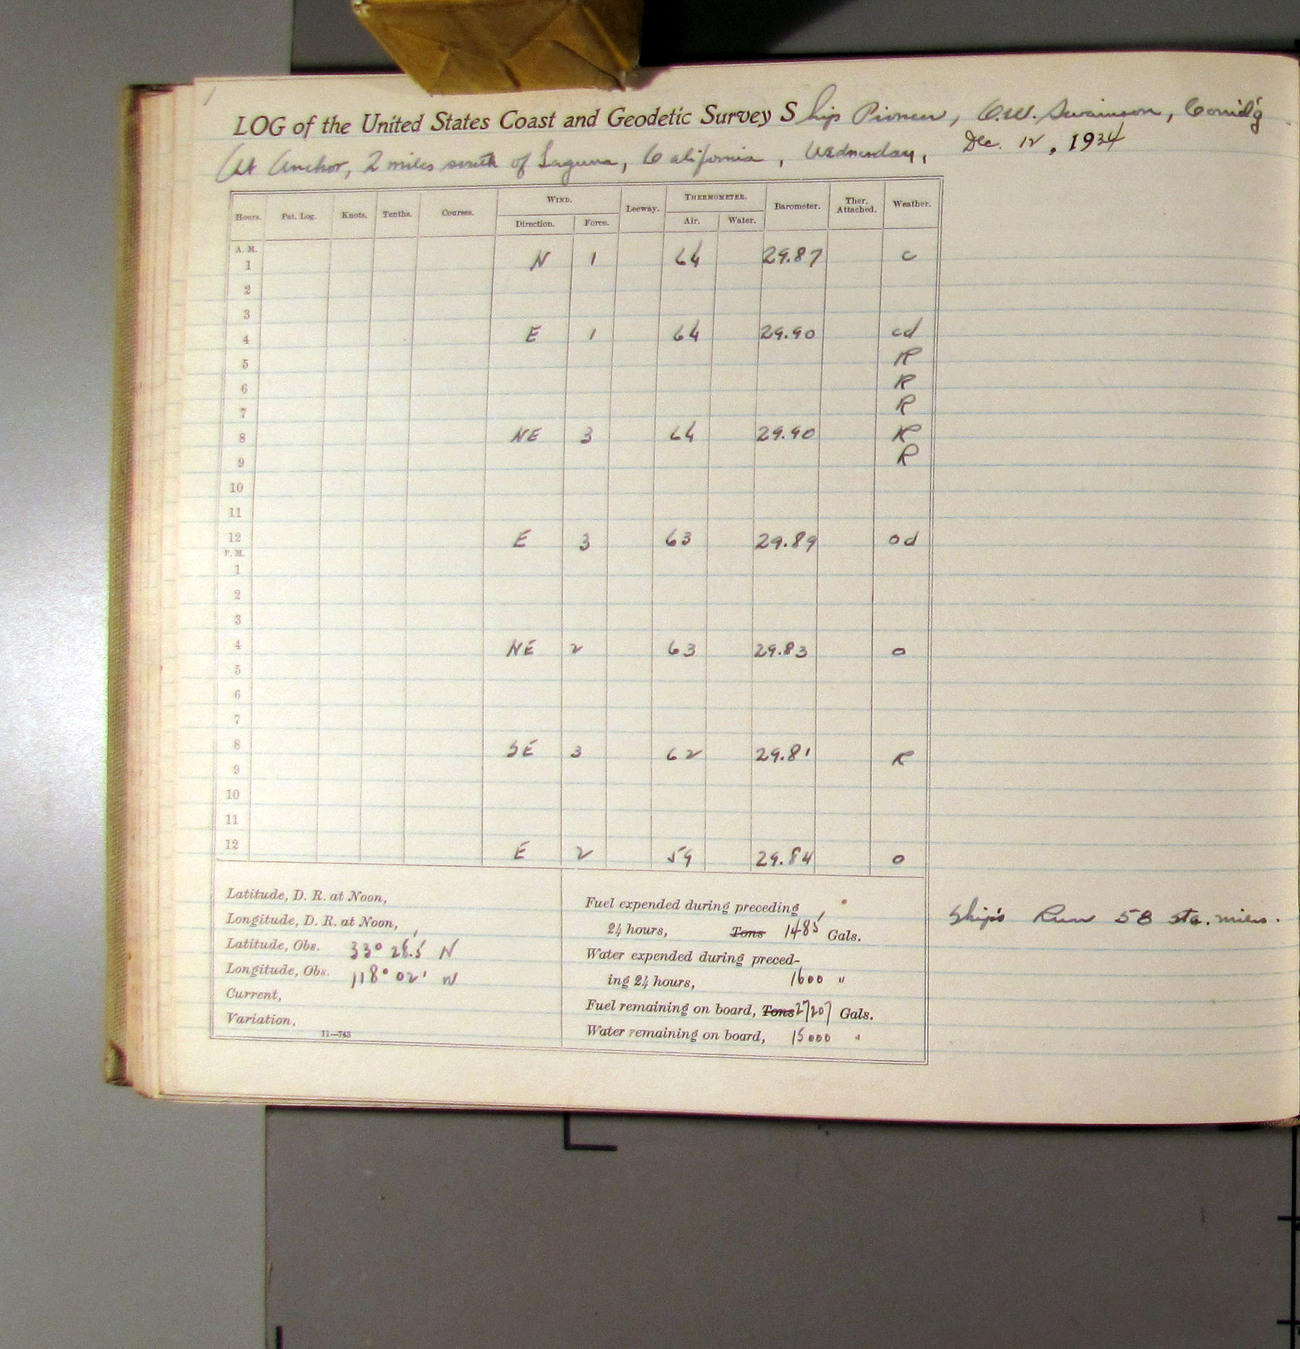 LOG of the United States Coast and Geodetic Survey Ship Pioneer, O.W. Swainson, Comd'g
At Anchor, 2 miles south of Laguna, California, Wednesday, Dec. 12, 1934
WIND. THERMOMETER.
Hours. Pat. Log. Knots. Tenths. Courses. Direction. Force. Leeway. Air. Water. Barometer. Ther. Attached. Weather.
A. M.
1 N 1 64 29.87 c
2
3
4 E 1 64 29.90 cd
5 R
6 R
7 R
8 NE 3 64 29.90 R
9 R
10
11
12 E 3 63 29.89 od
P. M.
1
2
3
4 NE 2 63 29.83 o
5
6
7
8 SE 3 62 29.81 R
9
10
11
12 E 2 59 29.84 o
Latitude, D. R. at Noon,
Longitude, D. R. at Noon,
Latitude, Obs. 33° 28.5' N
Longitude, Obs. 118° 02' W
Current,
Variation,
11—763
Fuel expended during preceding
24 hours, Tons 1485 Gals.
Water expended during preced-
ing 24 hours, 1600 "
Fuel remaining on board, Tons 27207 Gals.
Water remaining on board, 15000 "
Ship's Run 58 sta. miles.